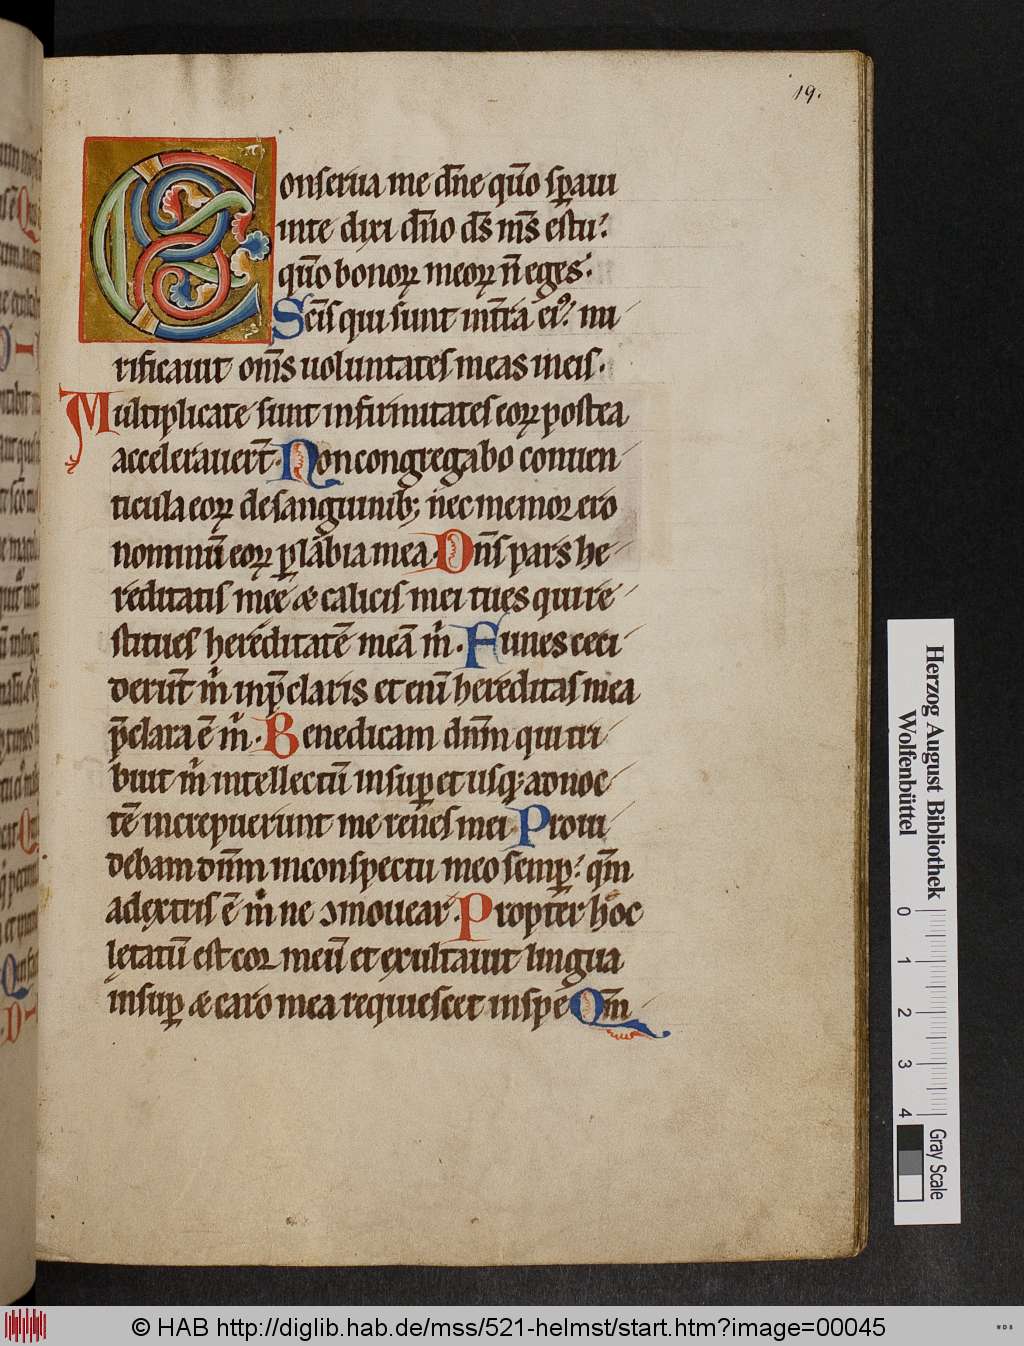 19.
Conserua me dn̄e qūo sꝑaui
inte dixi dn̄o ds̄ ms̄ es tu.
qūo bonoꝝ meoꝝ n̄ eges.
Scīs qui sunt int̄ra eiꝰ. mi
rificauit om̄s uoluntates meas in eis.
Multiplicate sunt infirmitates eoꝝ postea
accelerauer̄t. Non congregabo conuen
ticula eoꝝ de sanguinib; nec memor ero
nominū eoꝝ ꝑ labia mea. Dn̄s pars he
reditatis meę & calicis mei tu es qui re
stitues hereditatē meā m̍. Funes ceci
derūt m̍ inp̄claris et enī hereditas mea
p̄clara ē m̍. Benedicam dn̄m qui tri
buit m̍ intellectū insuꝑ et usq; ad noc
tē increpuerunt me renes mei Proui
debam dn̄m inconspectu meo semꝑ. qm̄
adextris ē m̍ ne ɔmouear. Propter hoc
lętatū est cor meū et exultauit lingua
insuꝑ & caro mea requiescet inspe Qm̄
Herzog August Bibliothek
Wolfenbüttel
0 1 2 3 4
Gray Scale
© HAB http://diglib.hab.de/mss/521-helmst/start.htm?image=00045